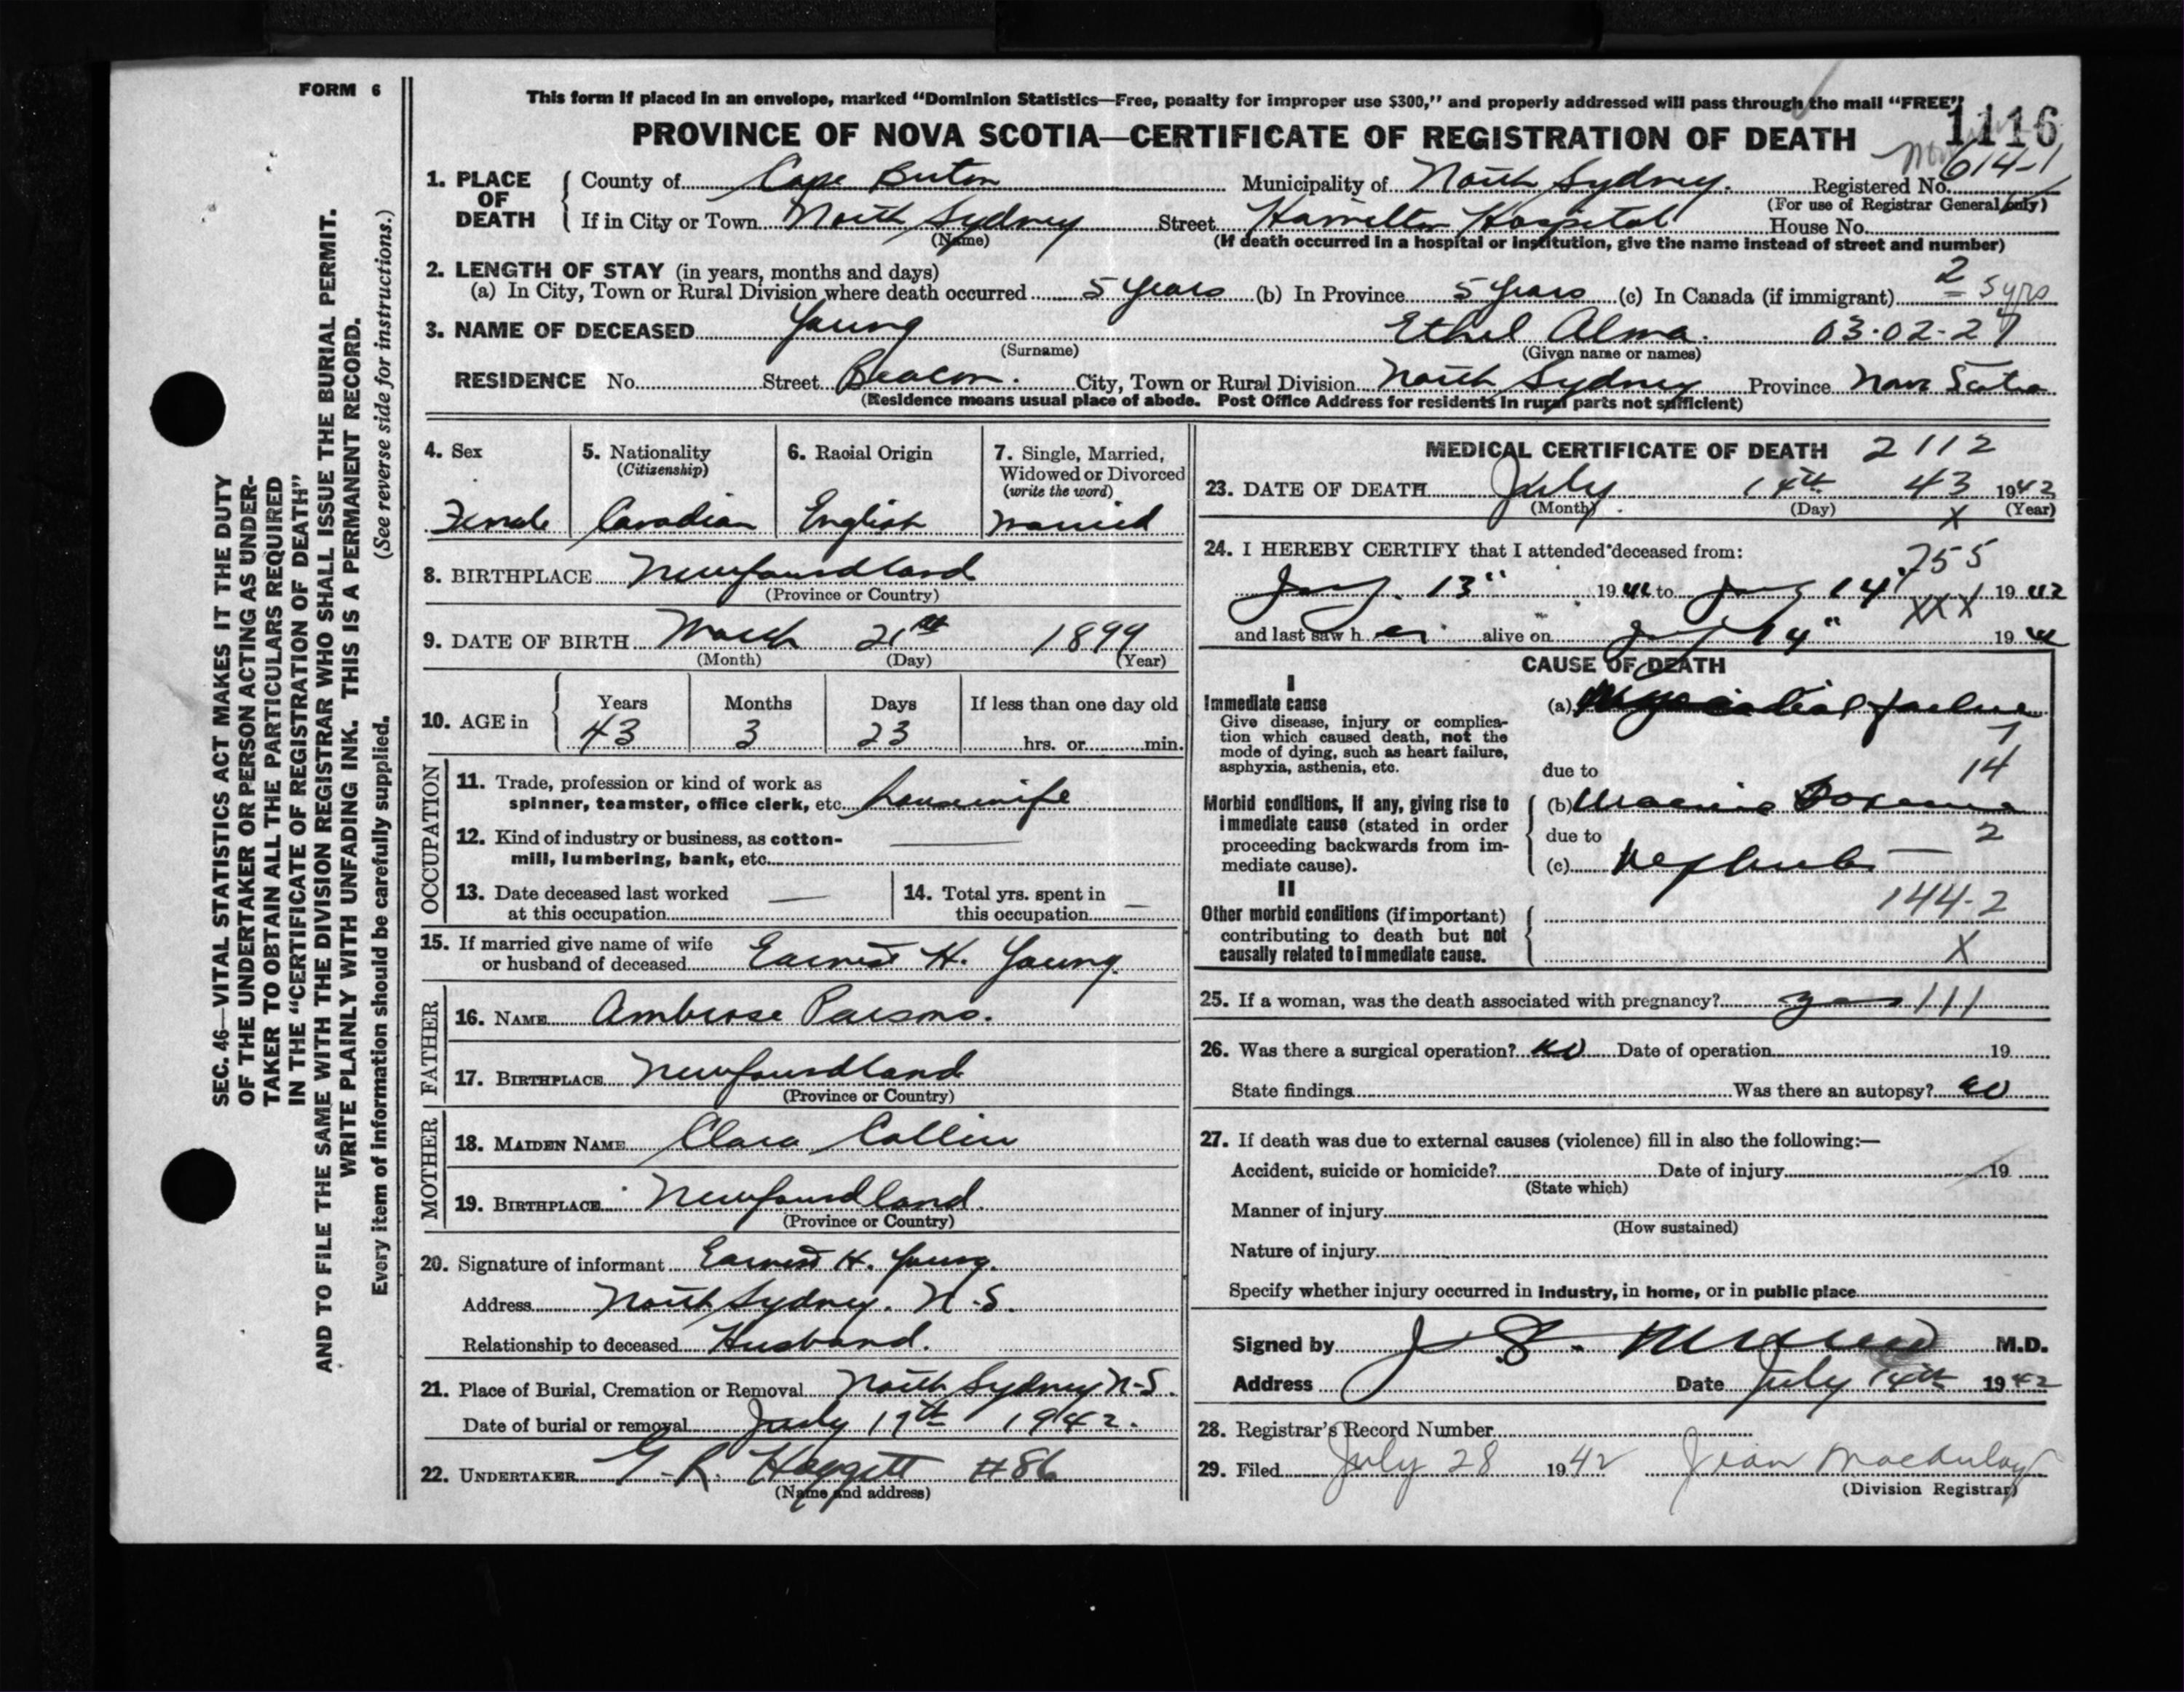 FORM 6
This form if placed in an envelope, marked “Dominion Statistics—Free, penalty for improper use $300,” and properly addressed will pass through the mail “FREE”
1116
PROVINCE OF NOVA SCOTIA—CERTIFICATE OF REGISTRATION OF DEATH
1. PLACE OF DEATH { County of Cape Breton Municipality of North Sydney. Registered No. 614-1
(For use of Registrar General only)
If in City or Town North Sydney Street Hamilton Hospital House No.
(Name) (If death occurred in a hospital or institution, give the name instead of street and number)
2. LENGTH OF STAY (in years, months and days) 2
(a) In City, Town or Rural Division where death occurred 5 years (b) In Province 5 years (c) In Canada (if immigrant) 5 yrs
3. NAME OF DECEASED Young Ethel Alma. 03-02-27
(Surname) (Given name or names)
RESIDENCE No. Street Beacon. City, Town or Rural Division North Sydney Province Nova Scotia
(Residence means usual place of abode. Post Office Address for residents in rural parts not sufficient)
4. Sex 5. Nationality 6. Racial Origin 7. Single, Married,
(Citizenship) Widowed or Divorced
(write the word)
Female Canadian English Married
8. BIRTHPLACE Newfoundland
(Province or Country)
9. DATE OF BIRTH March 21st 1899
(Month) (Day) (Year)
10. AGE in Years Months Days If less than one day old
43 3 23 hrs. or min.
OCCUPATION
11. Trade, profession or kind of work as
spinner, teamster, office clerk, etc. housewife
12. Kind of industry or business, as cotton-
mill, lumbering, bank, etc. —
13. Date deceased last worked 14. Total yrs. spent in
at this occupation — this occupation —
15. If married give name of wife
or husband of deceased Earnest H. Young.
FATHER
16. NAME Ambrose Parsons.
17. BIRTHPLACE Newfoundland
(Province or Country)
MOTHER
18. MAIDEN NAME Clara
19. BIRTHPLACE Newfoundland.
(Province or Country)
20. Signature of informant Earnest H. Young.
Address North Sydney. N.S.
Relationship to deceased Husband.
21. Place of Burial, Cremation or Removal North Sydney N.S.
Date of burial or removal July 17th 1942.
22. UNDERTAKER G. R. Haggett #86
(Name and address)
MEDICAL CERTIFICATE OF DEATH 2112
23. DATE OF DEATH July 14th 43 1942
(Month) (Day) X (Year)
24. I HEREBY CERTIFY that I attended deceased from: 755
13" 1942 to 14" 1942
XXX
and last saw her alive on 14" 1942
CAUSE OF DEATH
I
Immediate cause
Give disease, injury or complica-
tion which caused death, not the
mode of dying, such as heart failure,
asphyxia, asthenia, etc.
(a) Myocardial failure
7
due to 14
Morbid conditions, if any, giving rise to
immediate cause (stated in order
proceeding backwards from im-
mediate cause).
(b)
due to 2
(c) Nephritis —
II
Other morbid conditions (if important)
contributing to death but not
causally related to immediate cause.
144-2
X
25. If a woman, was the death associated with pregnancy? yes 111
26. Was there a surgical operation? no Date of operation 19
State findings Was there an autopsy? no
27. If death was due to external causes (violence) fill in also the following:—
Accident, suicide or homicide? Date of injury 19
(State which)
Manner of injury
(How sustained)
Nature of injury
Specify whether injury occurred in industry, in home, or in public place
Signed by J S. M.D.
Address Date July 14th 1942
28. Registrar's Record Number
29. Filed July 28 1942 Jean MacAulay
(Division Registrar)
SEC. 46—VITAL STATISTICS ACT MAKES IT THE DUTY
OF THE UNDERTAKER OR PERSON ACTING AS UNDER-
TAKER TO OBTAIN ALL THE PARTICULARS REQUIRED
IN THE “CERTIFICATE OF REGISTRATION OF DEATH”
AND TO FILE THE SAME WITH THE DIVISION REGISTRAR WHO SHALL ISSUE THE BURIAL PERMIT.
WRITE PLAINLY WITH UNFADING INK. THIS IS A PERMANENT RECORD.
Every item of information should be carefully supplied. (See reverse side for instructions.)